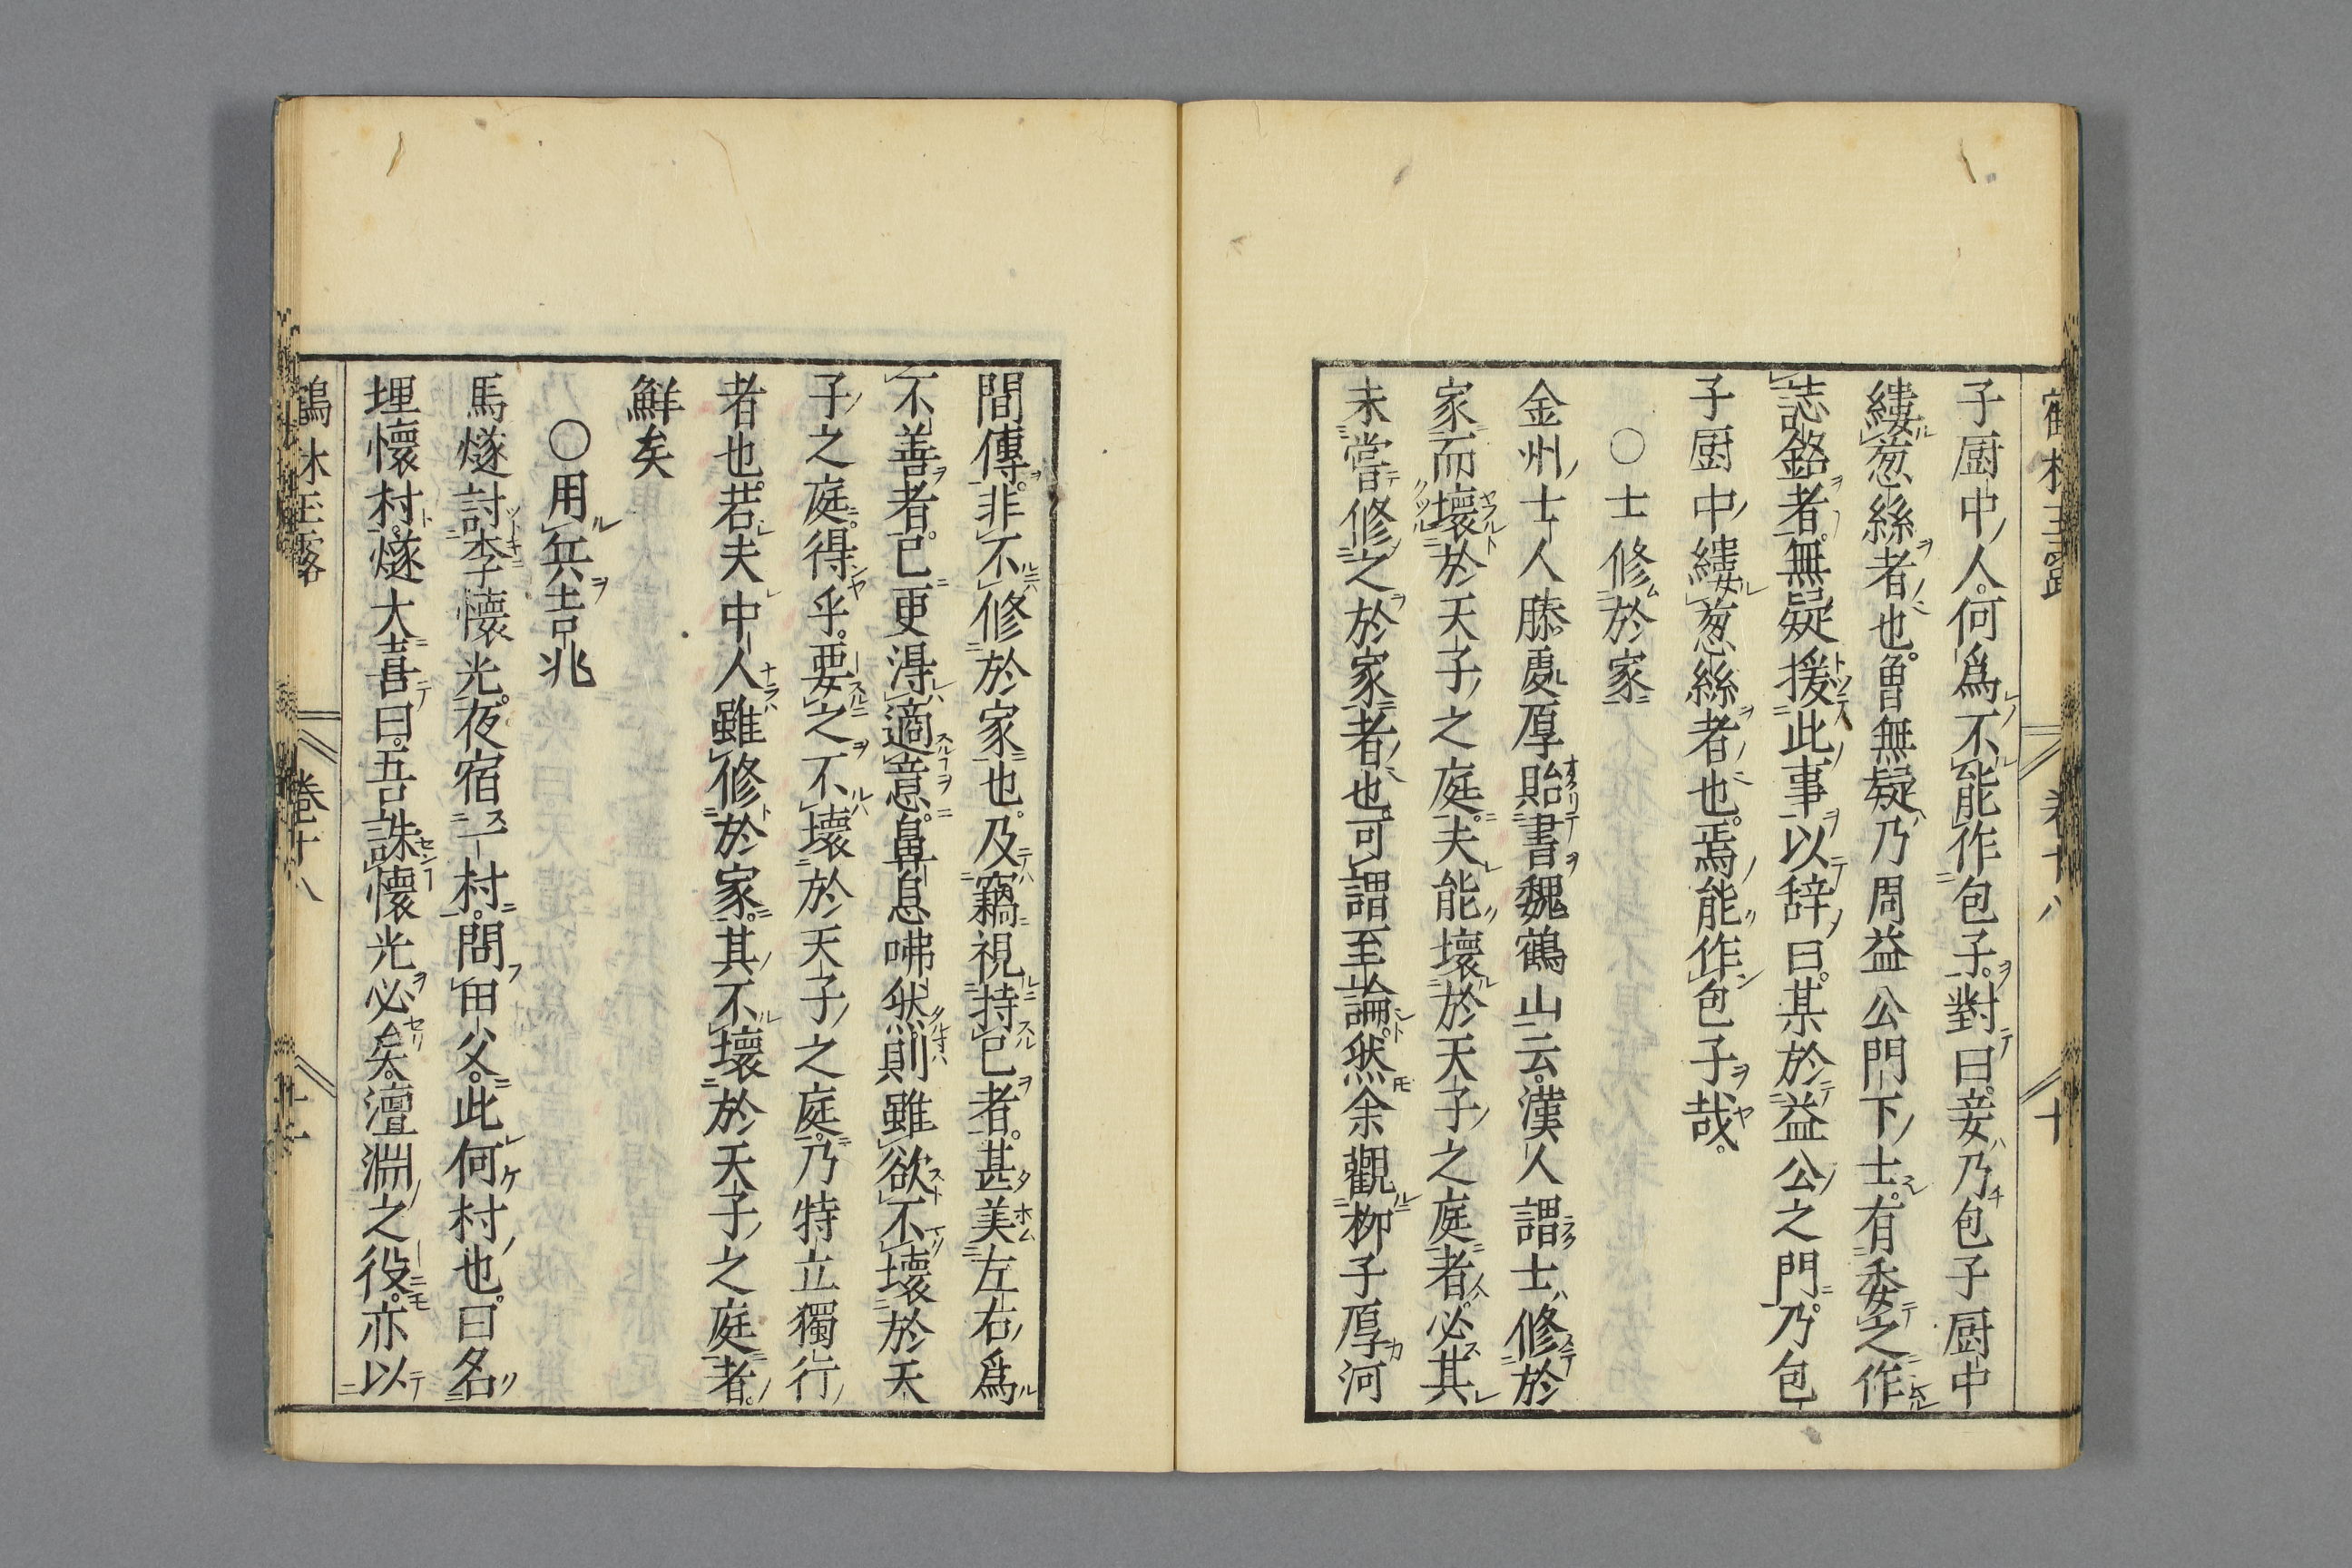 子厨中人何爲不能作包子對曰妾乃包子厨中
縷葱絲者也曾無疑乃周益公門下士有委之作
志銘者無疑援此事以辞曰某於益公之門乃包
子厨中縷葱絲者也焉能作包子哉
○士修於家
金州士人滕處厚貽書魏鶴山云漢人謂士修於
家而壞於天子之庭夫能壞於天子之庭者必其
未嘗修之於家者也可謂至論然余觀柳子厚河
間傳非不修於家也及竊視持己者甚美左右爲
不善者已更得適意鼻息咈然則雖欲不壞於天
子之庭得乎要之不壞於天子之庭乃特立獨行
者也若夫中人雖修於家其不壞於天子之庭者
鮮矣
○用兵吉兆
馬燧討李懷光夜宿一村問田父此何村也曰名
埋懷村燧大喜曰吾誅懷光必矣澶淵之役亦以
卷十八